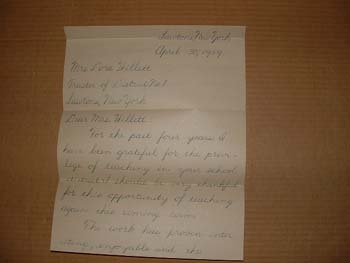 Lawtons, New York
April 30, 1929
Mrs. Lora Willett
Trustee of District No. 1
Lawtons, New York
Dear Mrs. Willett:
For the past four years I
have been grateful for the priv-
ilege of teaching in your school
should be very thankful
for the opportunity of teaching
again this coming term.
The work has proven inter
esting, enjoyable and